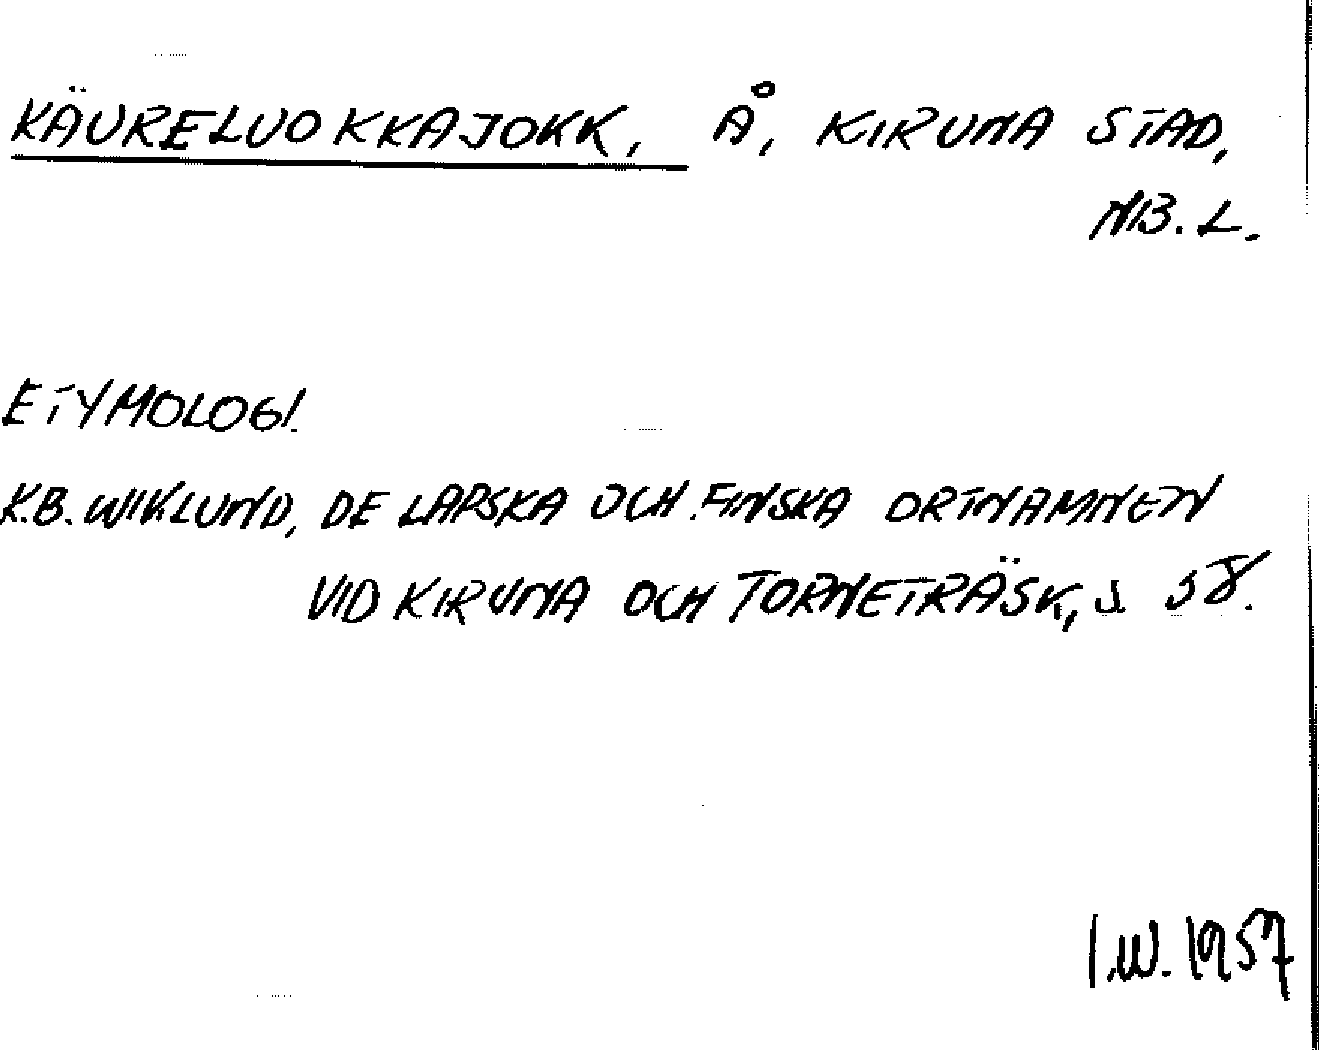 KÄURELUOKKAJOKK, Å, KIRUNA STAD,
NB. L.
ETYMOLOGI.
K.B. WIKLUND, DE LAPSKA OCH FINSKA ORTNAMNEN
VID KIRUNA OCH TORNETRÄSK, S 58.
I.W. 1957